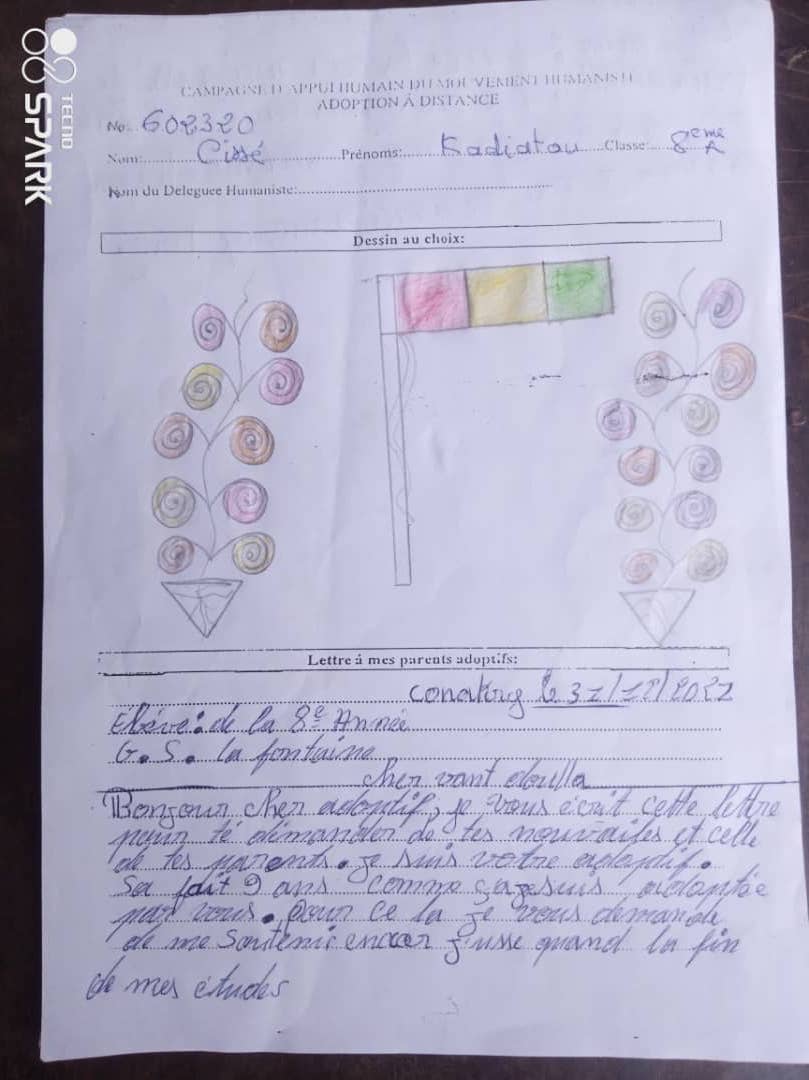 SPARK
TECNO
CAMPAGNE D'APPUI HUMAIN DU MOUVEMENT HUMANISTE
ADOPTION À DISTANCE
No. 602320
Nom: Cissé Prénoms: Kadiatou Classe: 8ème A
Nom du Deleguee Humaniste:
Dessin au choix:
Lettre á mes parents adoptifs:
Conakry le 31/12/2021
Élève: de la 8e Année
G. S. la fontaine
cher
Bonjour cher adoptif, je vous écrit cette lettre
pour té démander de tes nouvailes et celle
de tes parents. je suis votre adoptif.
Sa fait 9 ans comme ça je suis adoptée
par vous. pour ce la je vous demande
de me Soutenir encor jusse quand la fin
de mes études